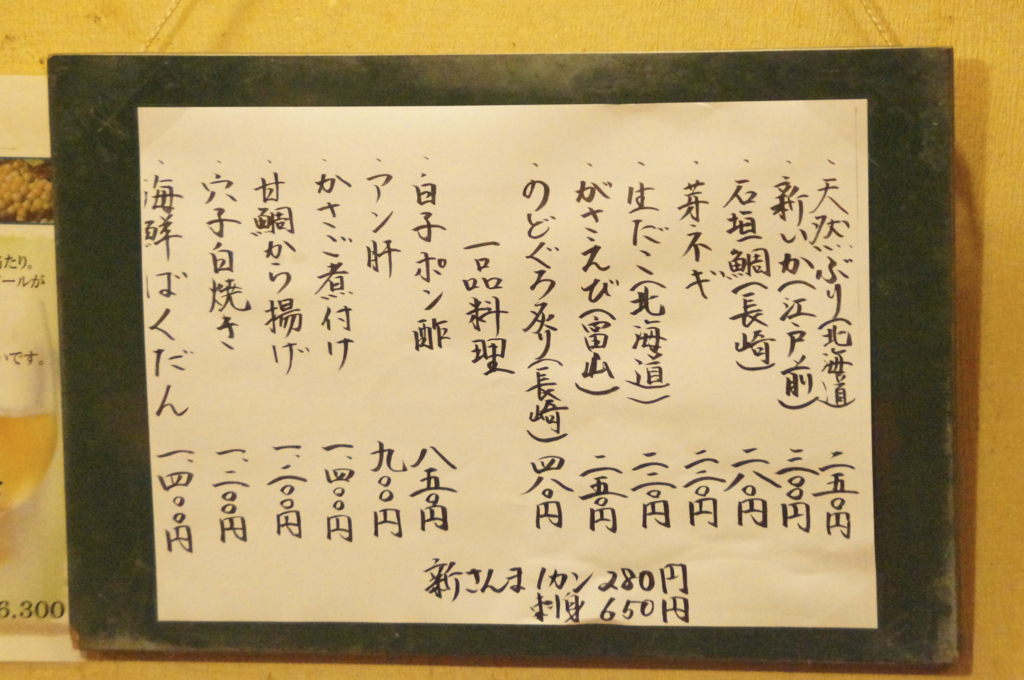 ・天然ぶり(北海道) 二五〇円
・新いか(江戸前) 三〇〇円
・石垣鯛(長崎) 二八〇円
・芽ネギ 二二〇円
・生だこ(北海道) 二二〇円
・がさえび(富山) 二五〇円
・のどぐろ炙り(長崎) 四八〇円
一品料理
・白子ポン酢 八五〇円
・アン肝 九〇〇円
・かさご煮付け 一、四〇〇円
・甘鯛から揚げ 一、二〇〇円
・穴子白焼き 一、二〇〇円
・海鮮ばくだん 一、四〇〇円
新さんま 1カン 280円
刺身 650円
たり。
ールが
いです。
6.300